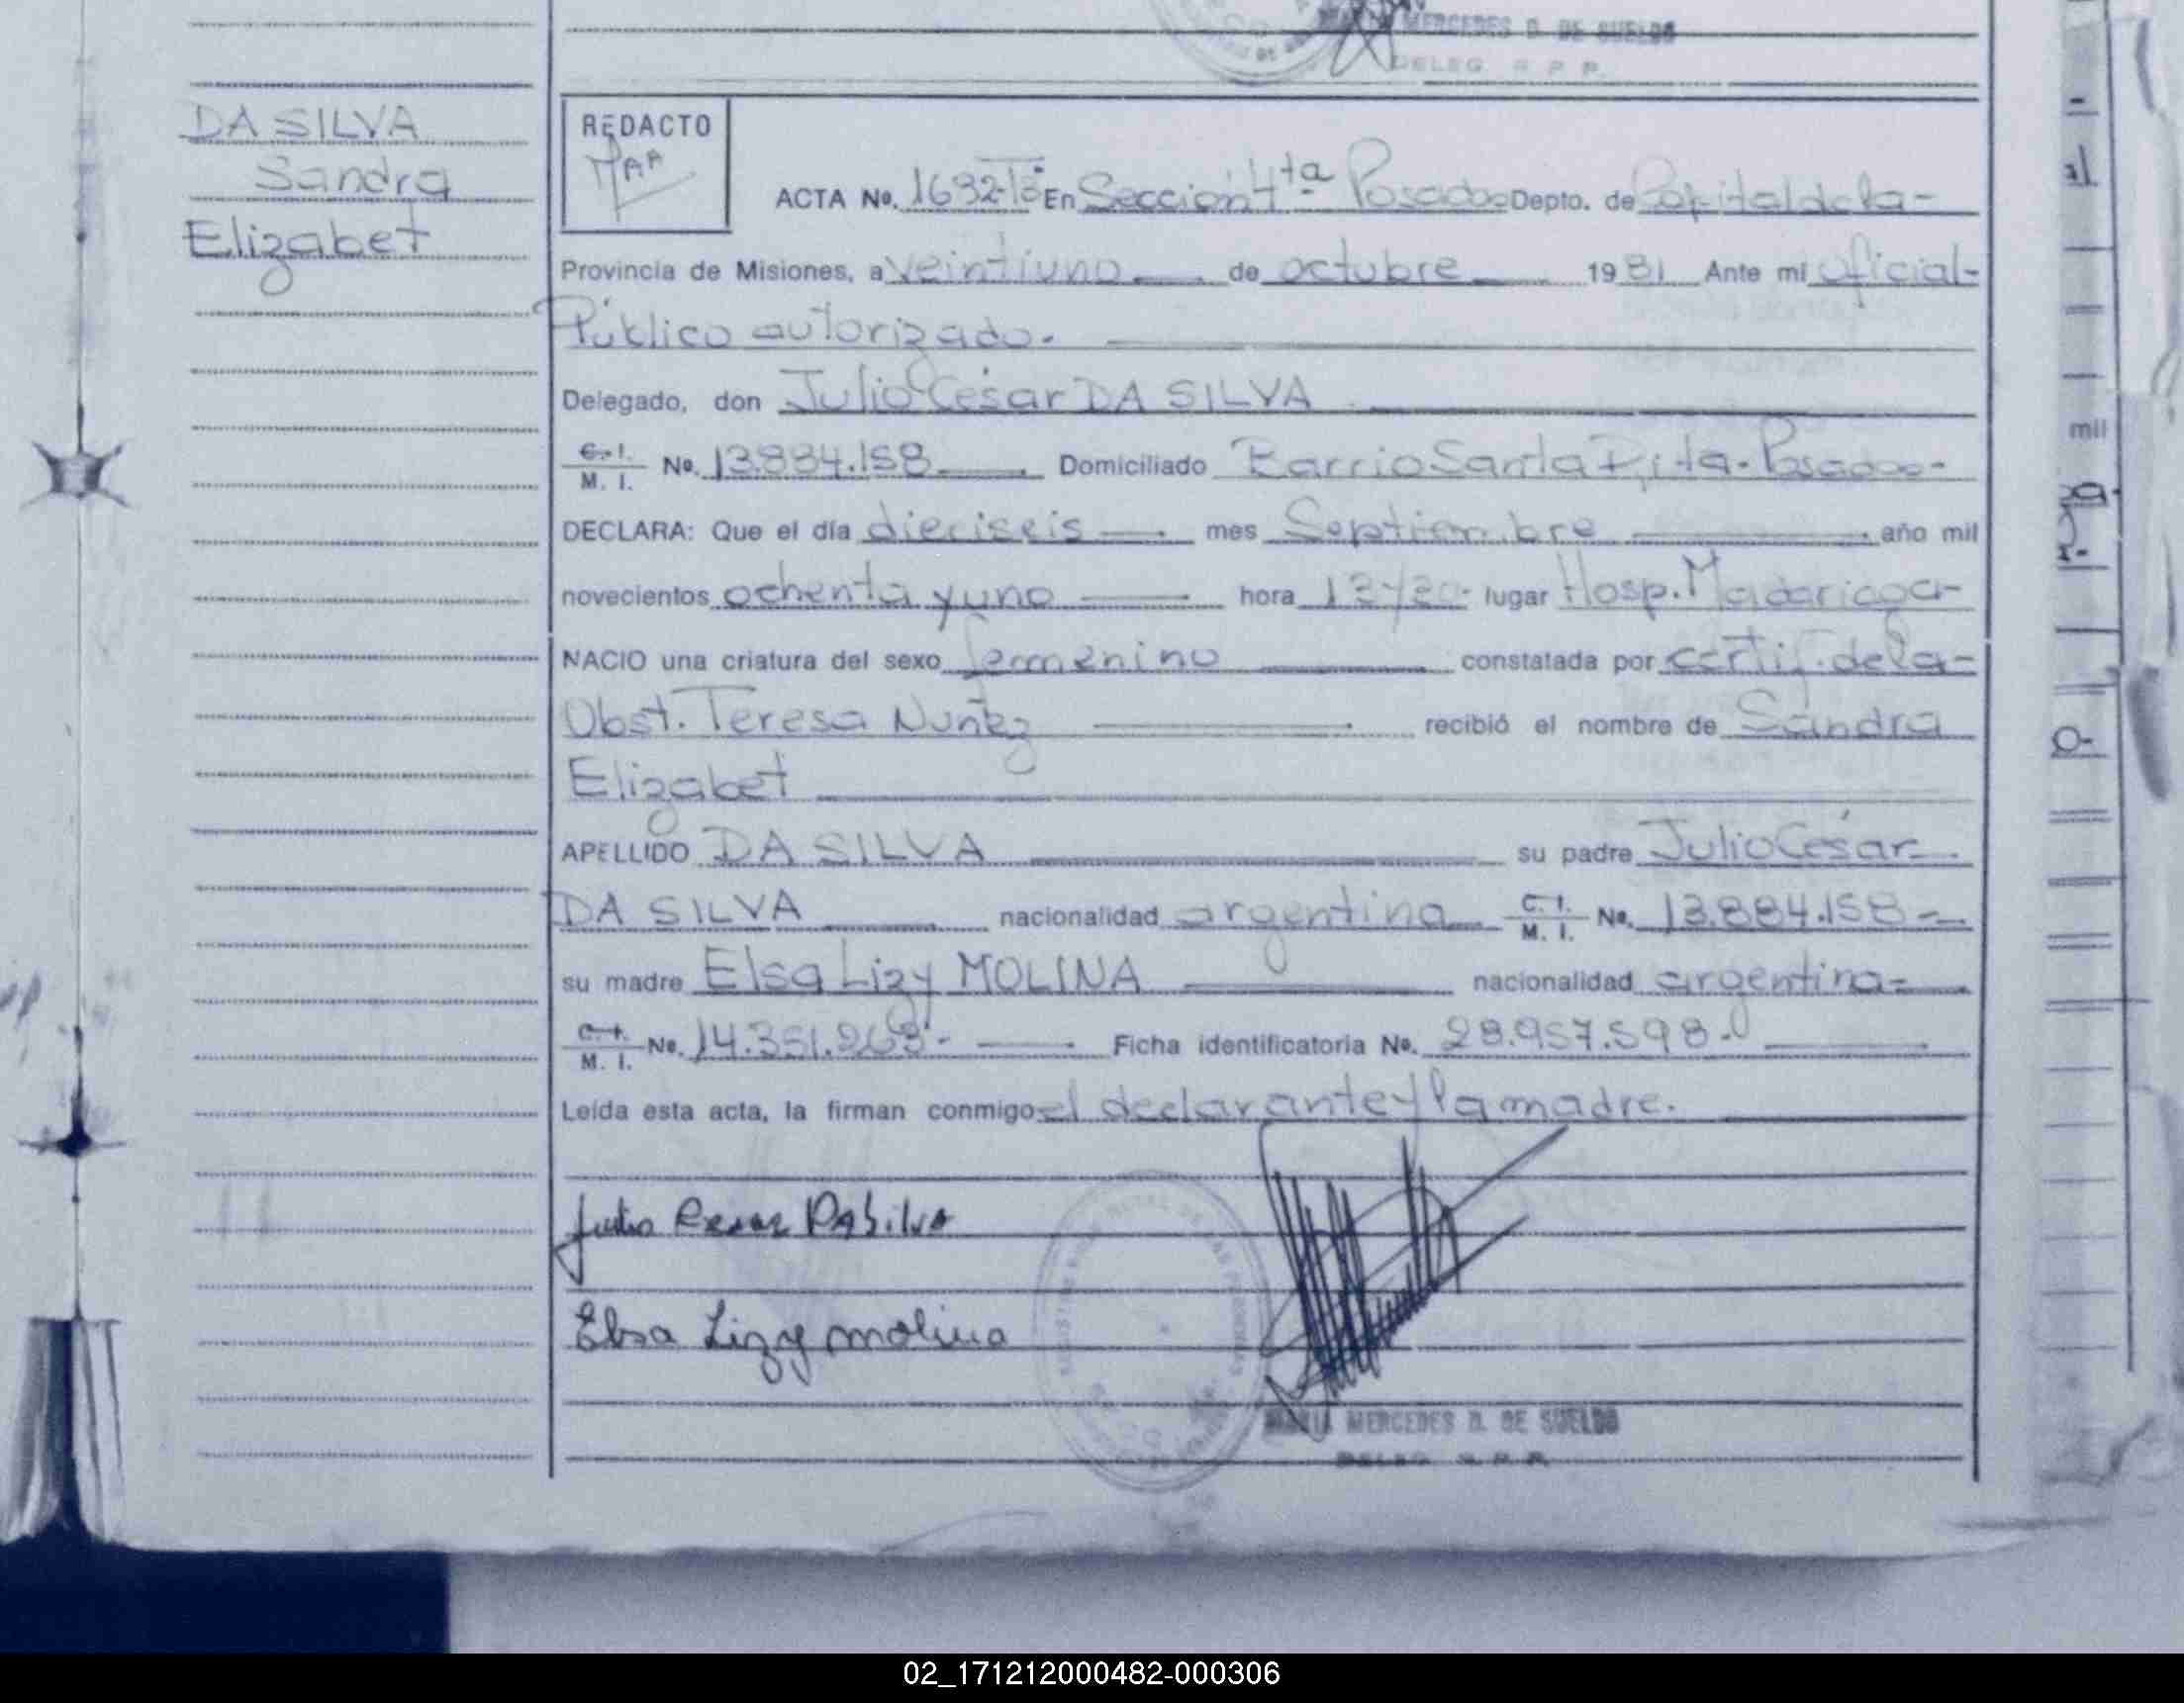 MERCEDES D. DE SUELDO
DELEG. R P P.
DA SILVA
Sandra
Elizabet
REDACTO
ACTA No. 1632-Tº En Sección 4ta Posadas Depto. de Capital de la-
Provincia de Misiones, a veintiuno de octubre 1981 Ante mi Oficial-
Público autorizado.
Delegado, don Julio César DA SILVA
C. I. M. I. No. 13.884.158 Domiciliado Barrio Santa Rita-Posadas-
DECLARA: Que el día dieciseis mes Septiembre año mil
novecientos ochenta y uno hora lugar Hosp. Madariaga-
NACIO una criatura del sexo femenino constatada por certif. de la-
Obst. Teresa Nuñez recibió el nombre de Sandra
Elizabet
APELLIDO DA SILVA su padre Julio César-
DA SILVA nacionalidad argentina C. I. M. I. No. 13.884.158-
su madre Elsa Lizy MOLINA nacionalidad argentina-
C. I. M. I. No. 14.351.263- Ficha identificatoria No. 28.957.598-
Leída esta acta, la firman conmigo el declarante y la madre.
Julio Cesar DaSilva
Elsa Lizy molina
MARIA MERCEDES D. DE SUELDO
DELEG. R. P. P.
mil
02_171212000482-000306